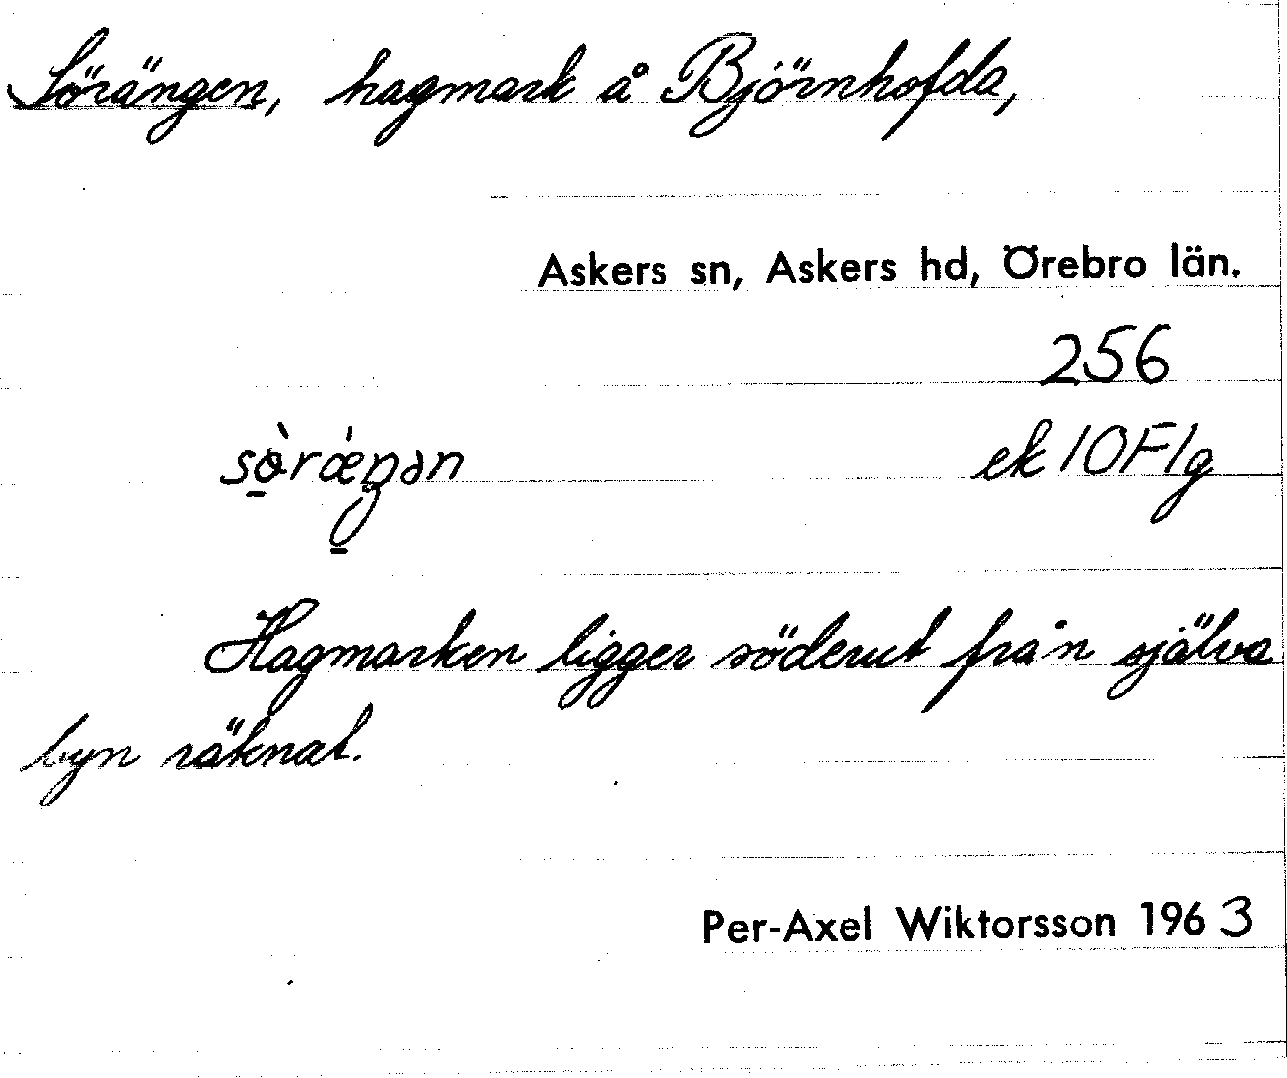 Sörängen, hagmark å Björnhofda,
Askers sn, Askers hd, Örebro län.
256
sø̀rǽŋən ek 10F1g
Hagmarken ligger söderut från själva
byn räknat.
Per-Axel Wiktorsson 1963